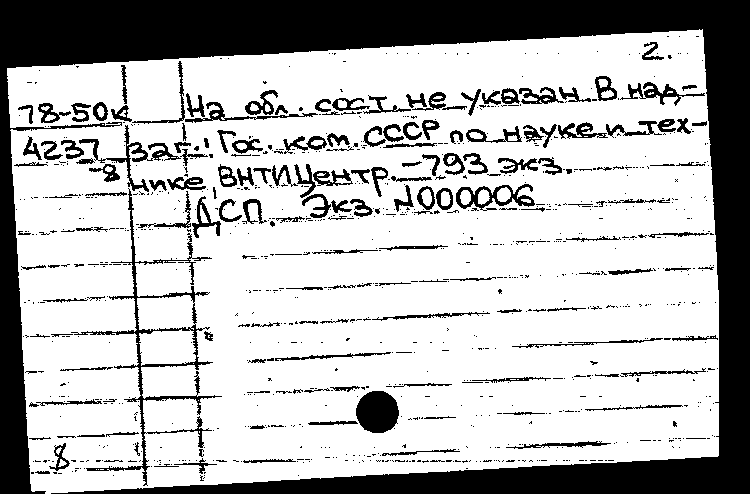 2.
78-50к На обл. сост. не указан. В над-
4237 заг.: Гос. ком. СССР по науке и тех-
-8 нике, ВНТИЦентр. -793 экз.
ДСП. Экз. N000006
8